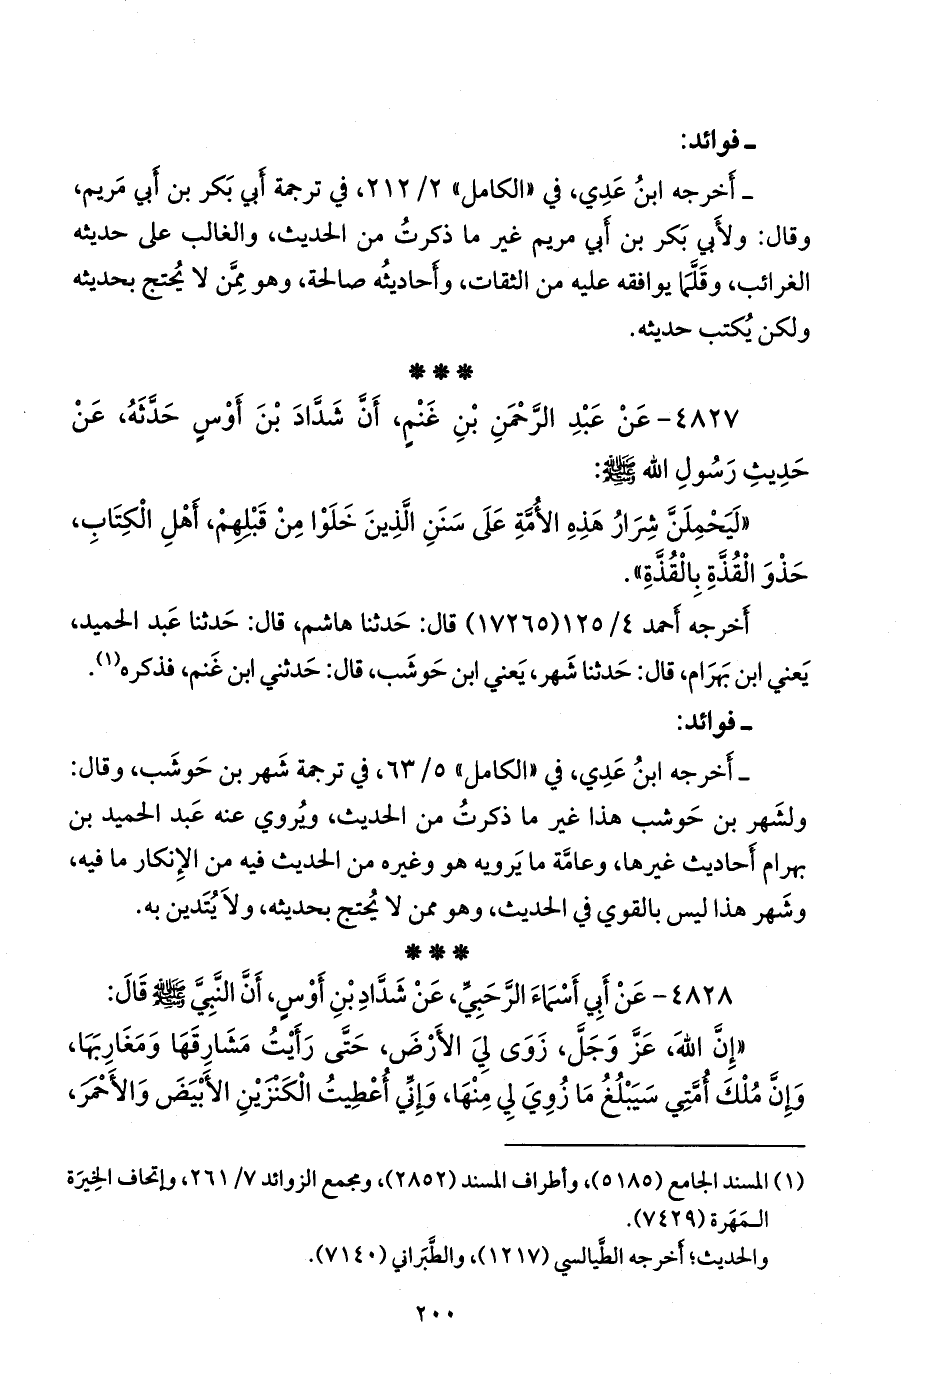 ـ فوائد:
ـ أَخرجه ابنُ عَدِي، في «الكامل» ٢/ ٢١٢، في ترجمة أَبي بَكر بن أَبي مَريم،
وقال: ولأَبي بَكر بن أَبي مريم غير ما ذكرتُ من الحديث، والغالب على حديثه
الغرائب، وقَلَّما يوافقه عليه من الثقات، وأَحاديثُه صالحة، وهو مِمَّن لا يُحتج بحديثه
ولكن يُكتب حديثه.
* * *
٤٨٢٧- عَنْ عَبْدِ الرَّحْمَنِ بْنِ غَنْمٍ، أَنَّ شَدَّادَ بْنَ أَوْسٍ حَدَّثَهُ، عَنْ
حَدِيثِ رَسُولِ الله ﷺ:
«لَيَحْمِلَنَّ شِرَارُ هَذِهِ الأُمَّةِ عَلَى سَنَنِ الَّذِينَ خَلَوْا مِنْ قَبْلِهِمْ، أَهْلِ الْكِتَابِ،
حَذْوَ الْقُذَّةِ بِالْقُذَّةِ».
أَخرجه أَحمد ٤/ ١٢٥(١٧٢٦٥) قال: حَدثنا هاشم، قال: حَدثنا عَبد الحميد،
يَعني ابن بَهرَام، قال: حَدثنا شَهر، يَعني ابن حَوشَب، قال: حَدثني ابن غَنم، فذكره(١).
ـ فوائد:
ـ أَخرجه ابنُ عَدِي، في «الكامل» ٥/ ٦٣، في ترجمة شَهر بن حَوشَب، وقال:
ولشَهر بن حَوشب هذا غير ما ذكرتُ من الحديث، ويُروي عنه عَبد الحميد بن
بهرام أَحاديث غيرها، وعامَّة ما يَرويه هو وغيره من الحديث فيه من الإِنكار ما فيه،
وشَهر هذا ليس بالقوي في الحديث، وهو ممن لا يُحتج بحديثه، ولاَ يُتَدين به.
* * *
٤٨٢٨- عَنْ أَبِي أَسْمَاءَ الرَّحَبِيِّ، عَنْ شَدَّادِ بْنِ أَوْسٍ، أَنَّ النَّبِيَّ ﷺ قَالَ:
«إِنَّ اللهَ، عَزَّ وَجَلَّ، زَوَى لِيَ الأَرْضَ، حَتَّى رَأَيْتُ مَشَارِقَهَا وَمَغَارِبَهَا،
وَإِنَّ مُلْكَ أُمَّتِي سَيَبْلُغُ مَا زُوِيَ لِي مِنْهَا، وَإِنِّي أُعْطِيتُ الْكَنْزَيْنِ الأَبْيَضَ وَالأَحْمَرَ،
(١) المسند الجامع (٥١٨٥)، وأطراف المسند (٢٨٥٢)، ومجمع الزوائد ٧/ ٢٦١، وإتحاف الخِيرَة
الـمَهَرة (٧٤٢٩).
والحديث؛ أخرجه الطَّيالسي (١٢١٧)، والطَّبَراني (٧١٤٠).
٢٠٠